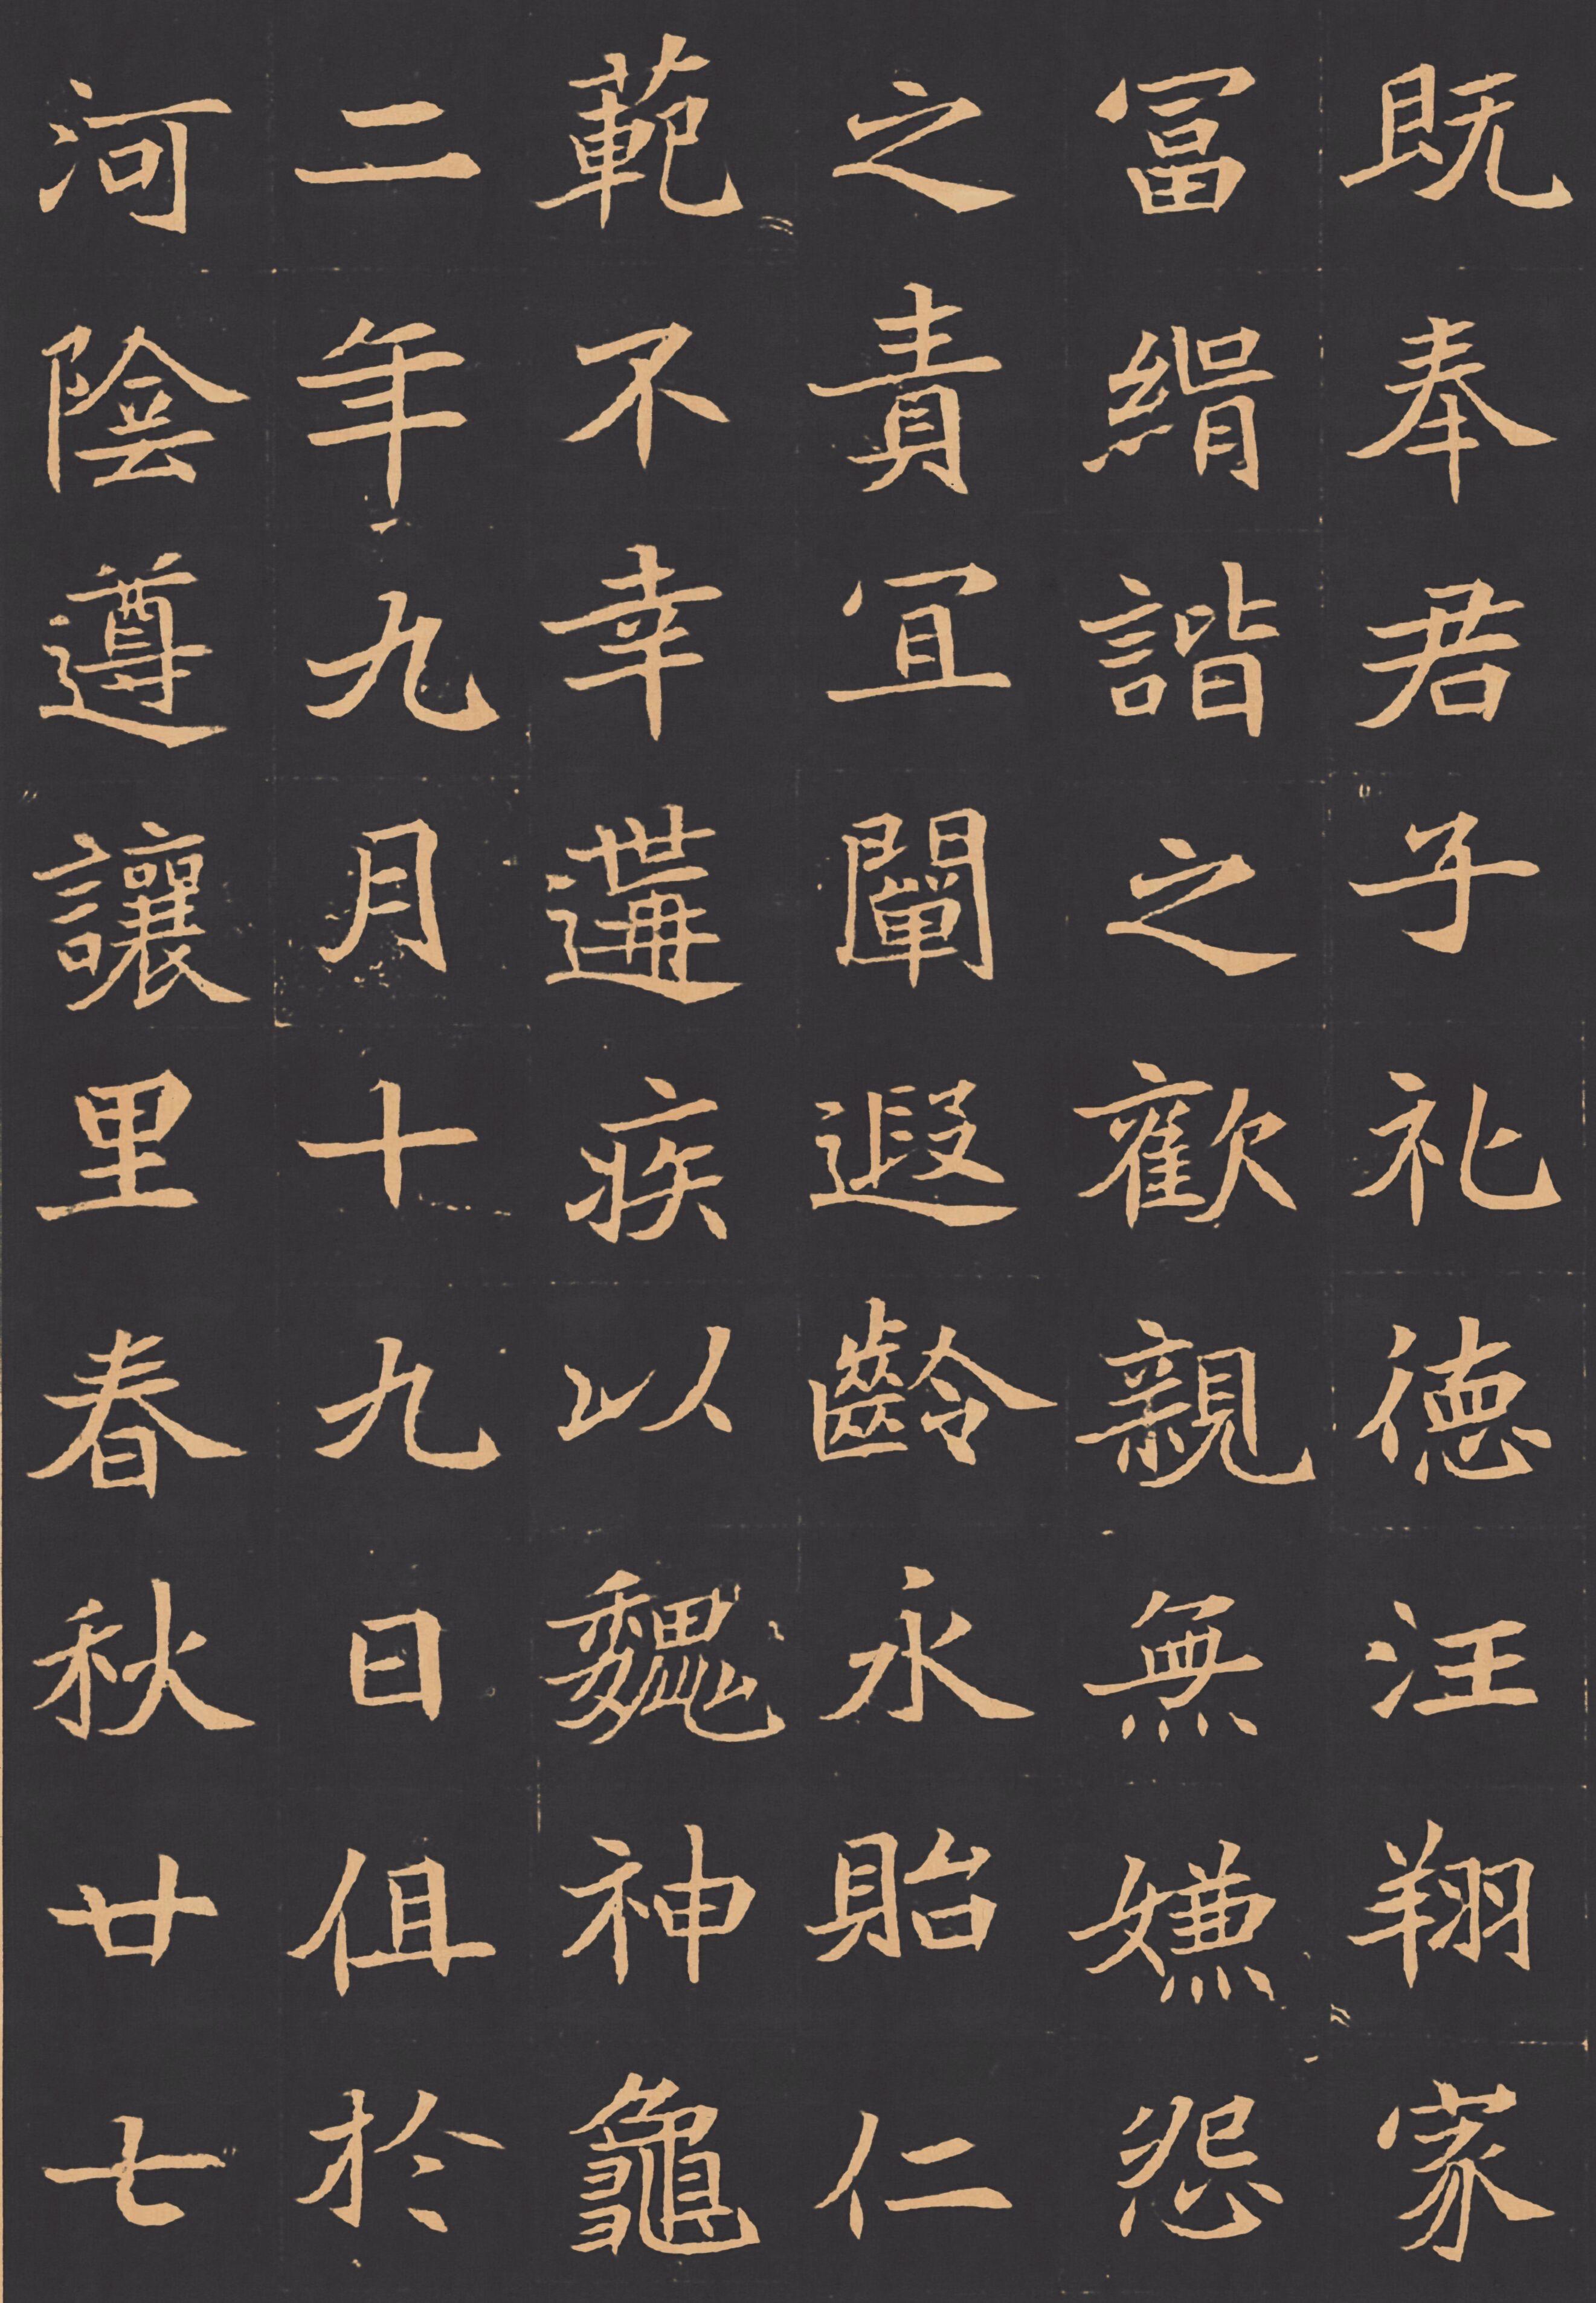 既奉君子礼徳汪翔家
冨緝諧之歡親無嫌怨
之責冝闡遐齡永貽仁
範不幸遘疾以魏神龜
二年九月十九日徂於
河陰遵讓里春秋廿七